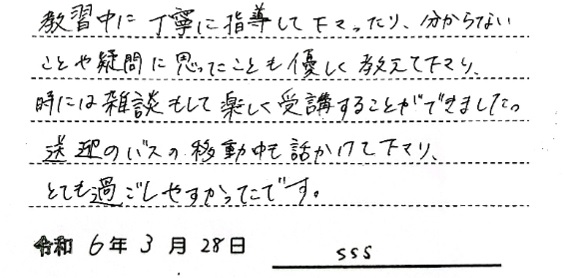 教習中に丁寧に指導して下さったり、分からない
ことや疑問に思ったことも優しく教えて下さり、
時には雑談もして楽しく受講することができました。
送迎のバスの移動中も話かけて下さり、
とても過ごしやすかったです。
令和 6年 3月 28日 sss